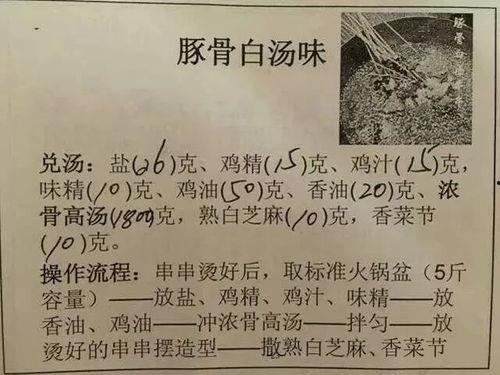 豚骨白汤味
豚骨
兑汤：盐(26)克、鸡精(15)克、鸡汁(15)克，
味精(10)克、鸡油(50)克、香油(20)克、浓
骨高汤(1800)克，熟白芝麻(10)克，香菜节
(10)克。
操作流程：串串烫好后，取标准火锅盆（5斤
容量）——放盐、鸡精、鸡汁、味精——放
香油、鸡油——冲浓骨高汤——拌匀——放
烫好的串串摆造型——撒熟白芝麻、香菜节